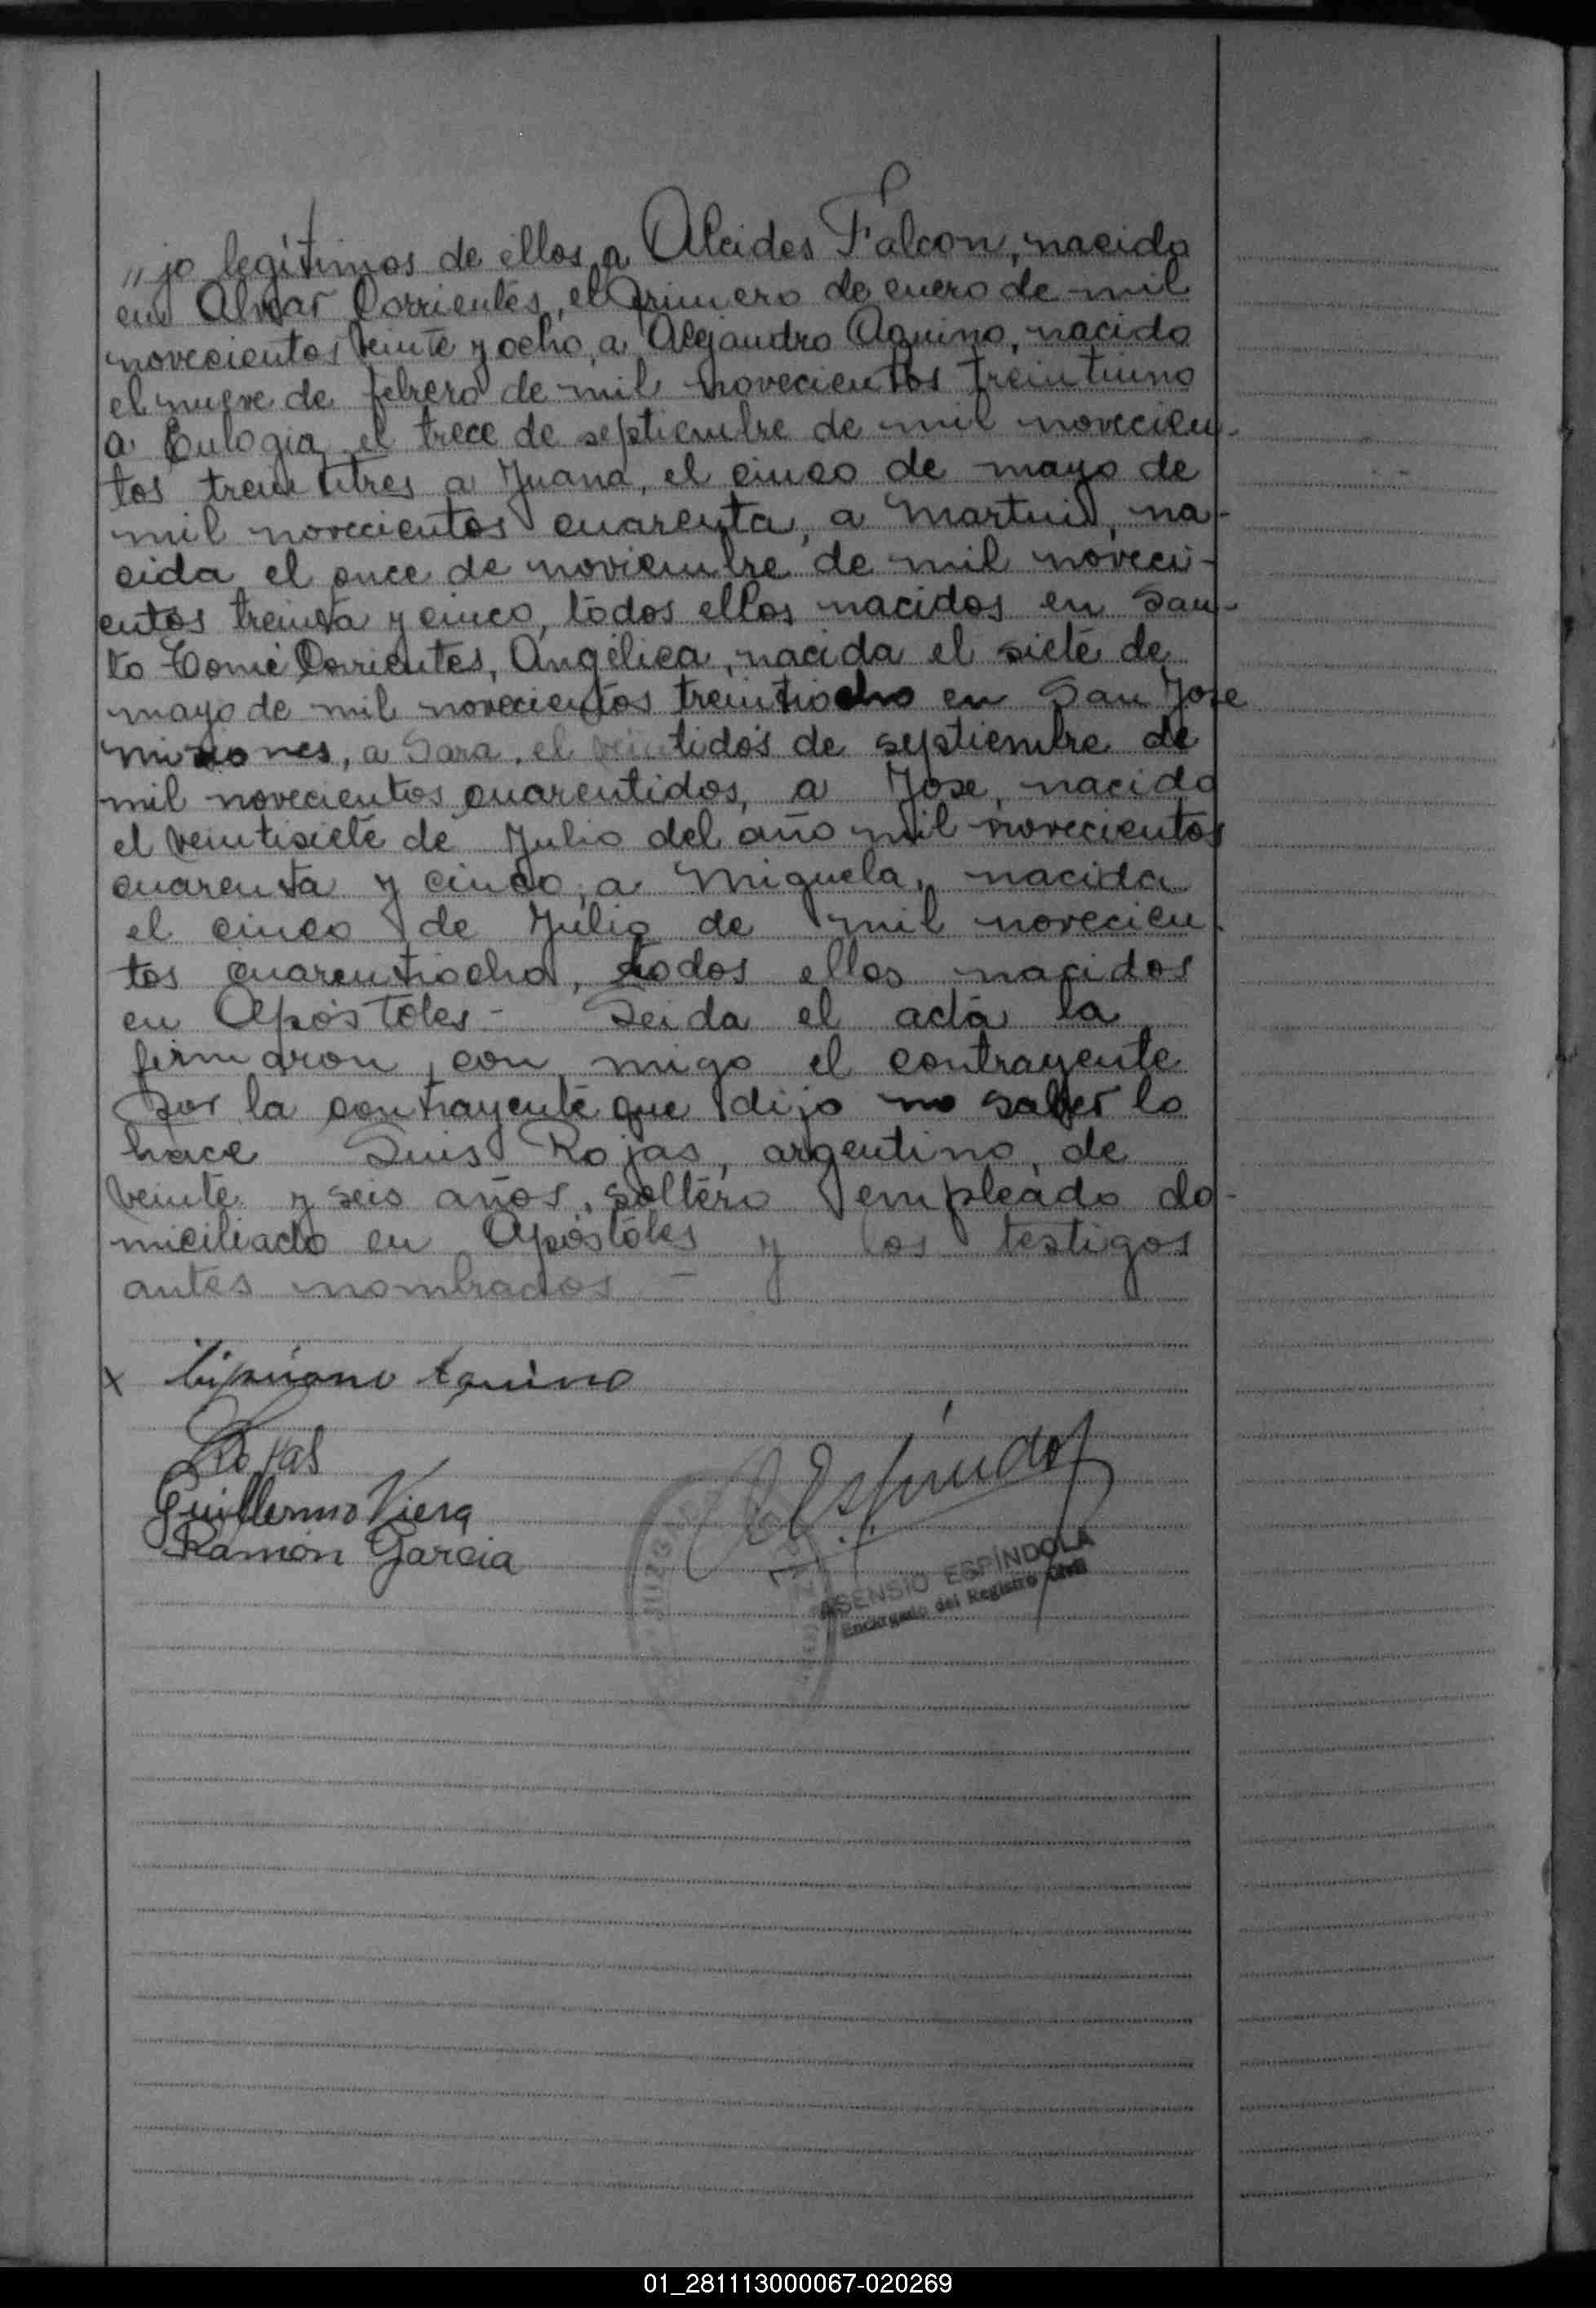 „jo legitimos de ellos a Alcides Falcon, nacido
en Alvear Corrientes, el primero de enero de mil
novecientos veinte y ocho, a Alejandro Aquino, nacido
el nueve de febrero de mil novecientos treintiuno
a Eulogia el trece de septiembre de mil novecien-
tos treintitres a Juana, el cinco de mayo de
mil novecientos cuarenta, a Martina, na-
cida el once de noviembre de mil noveci-
entos treinta y cinco, todos ellos nacidos en San-
to Tomé Corrientes, Angélica, nacida el siete de
mayo de mil novecientos treintiocho en San Jose
Misiones, a Sara, el veintidos de septiembre de
mil novecientos cuarentidos, a Jose, nacido
el veintisiete de Julio del año mil novecientos
cuarenta y cinco, a Miguela, nacida
el cinco de Julio de mil novecien-
tos cuarentiocho, todos ellos nacidos
en Apóstoles - Leida el acta la
firmaron con migo el contrayente
por la contrayente que dijo no saber lo
hace Luis Rojas, argentino, de
veinte y seis años, soltero empleado do-
miciliado en Apóstoles y los testigos
antes nombrados -
x Cipriano Aquino
Rojas
Guillermo Viera
Ramon Garcia
A. Espindola
ASENSIO ESPÍNDOLA
Encargado del Registro Civil
01_281113000067-020269